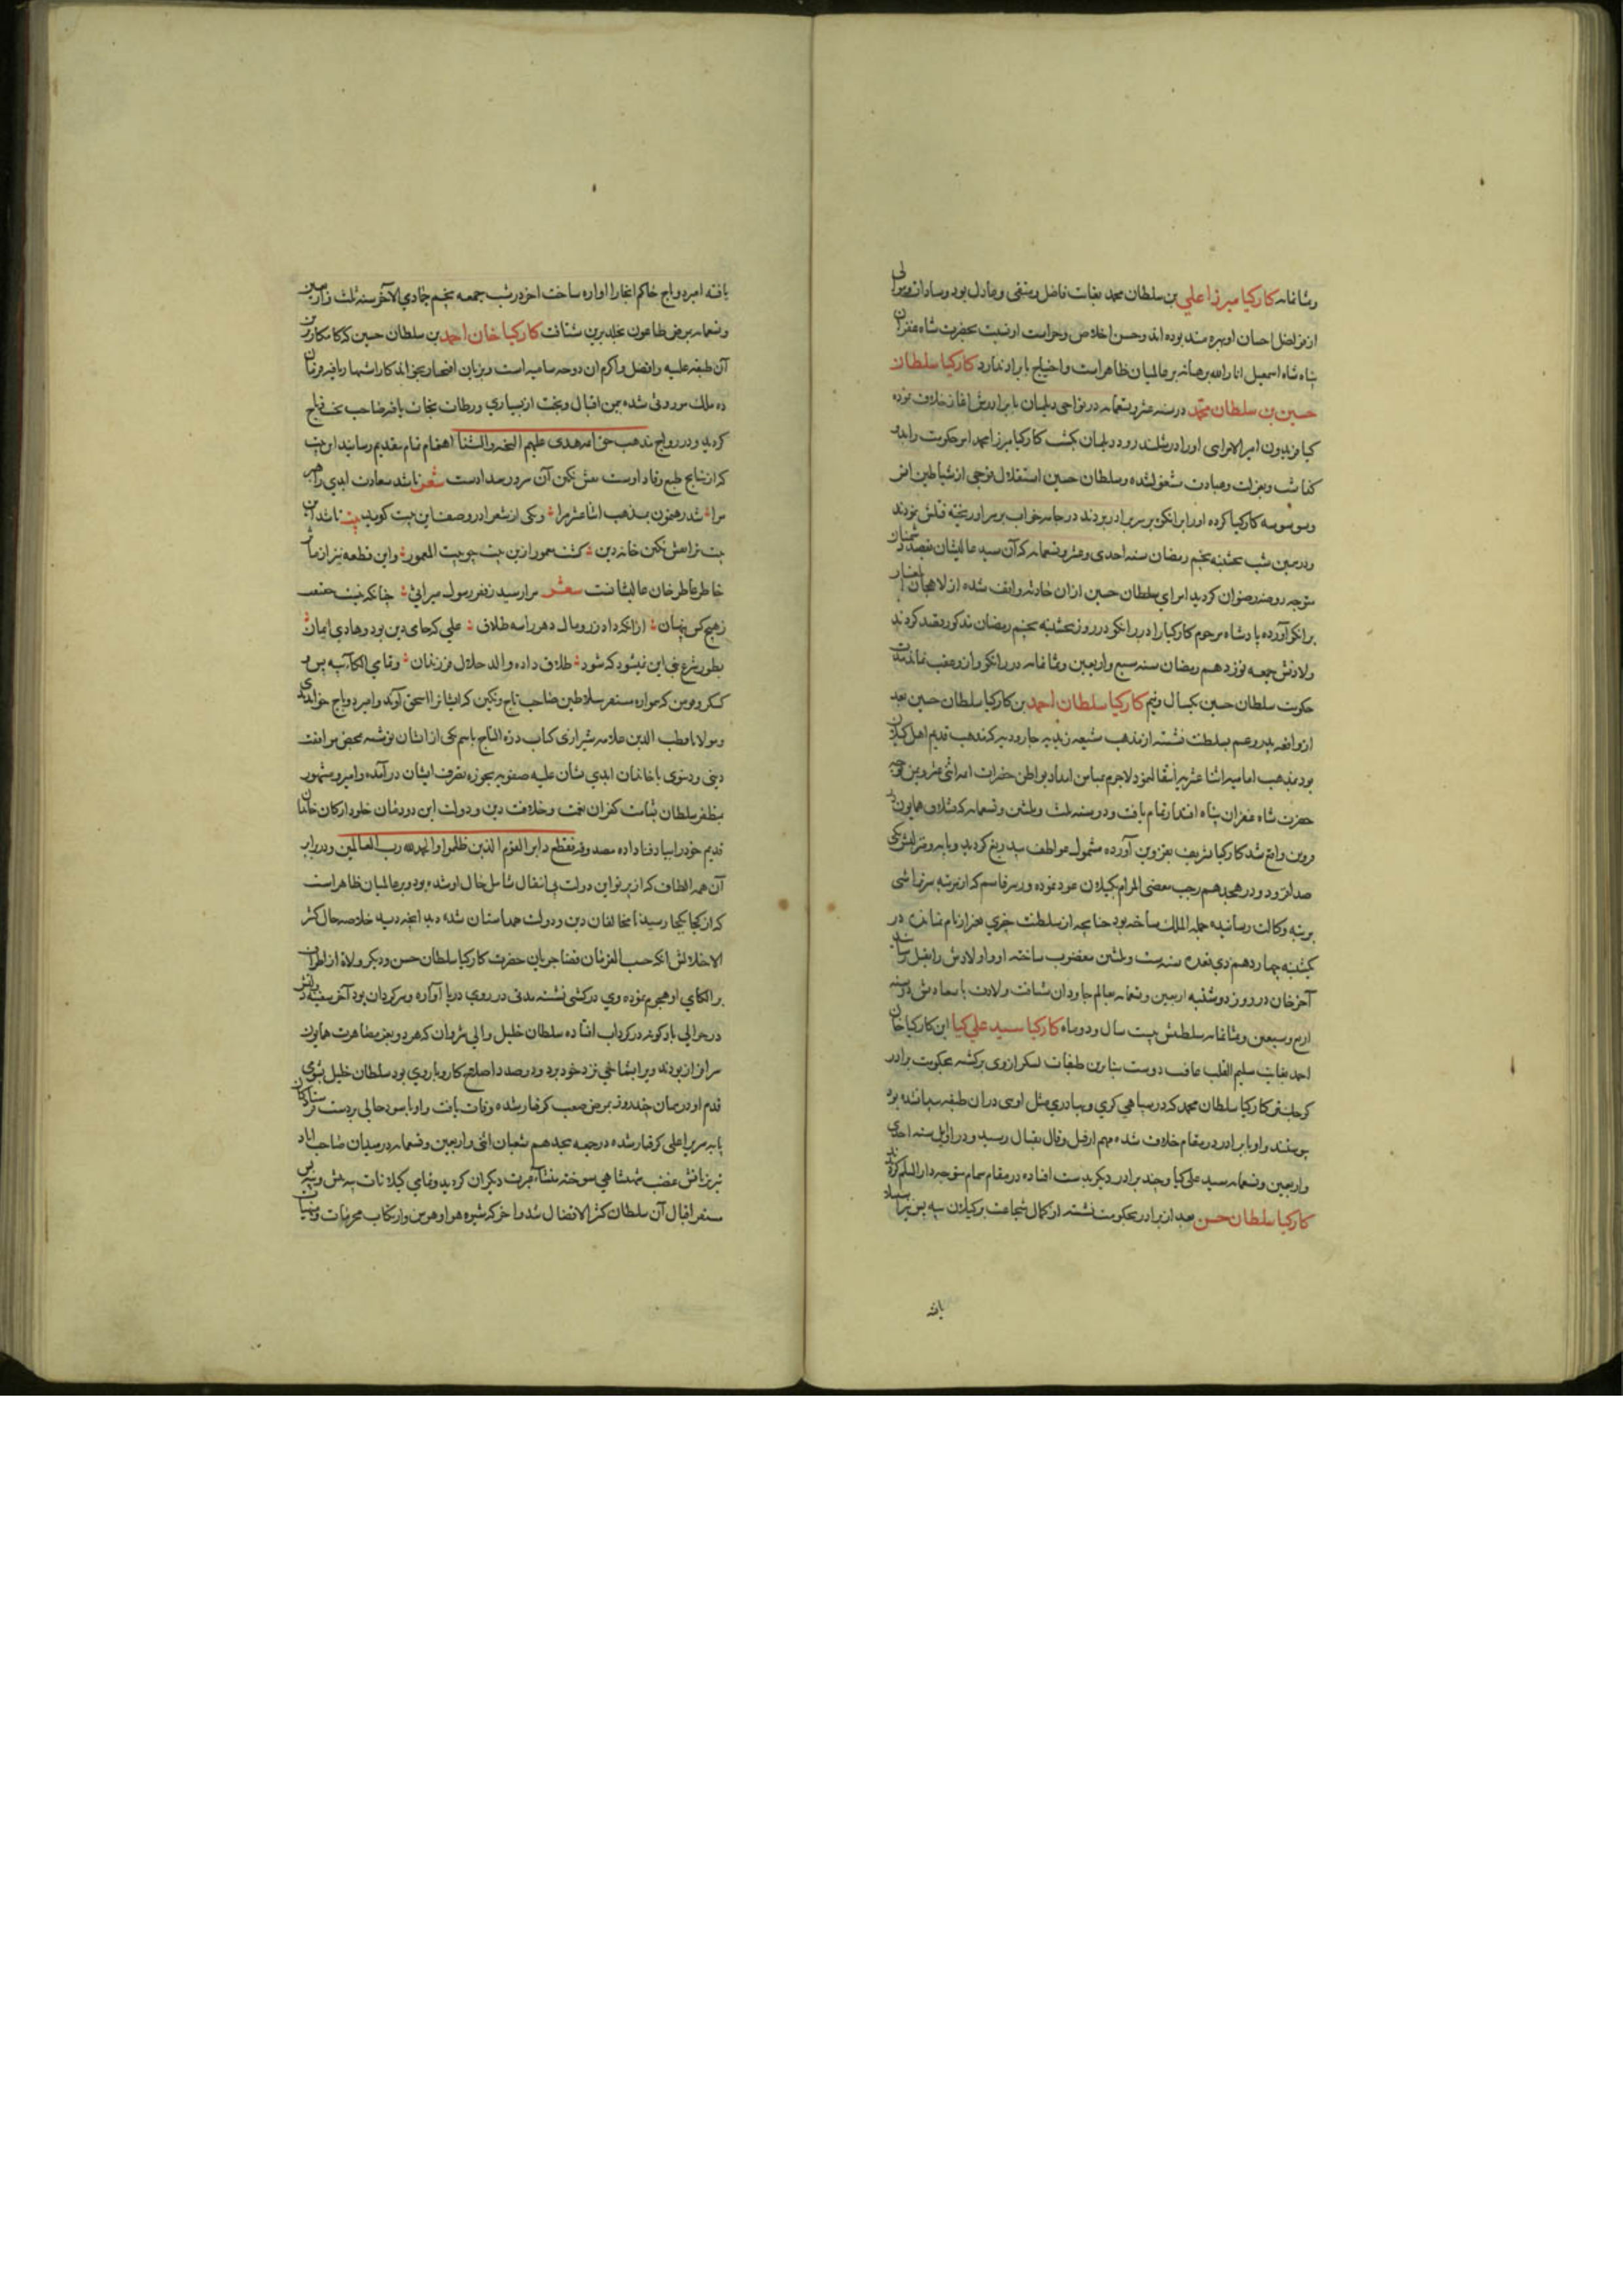 وثمانمائه کارکیا میرزا علی بن سلطان محمد بغایت فاضل و متقی و عادل بود و سادات و موالی
از فواضل احسان او بهره مند بوده اند و حسن اخلاص و حراست او نسبت بحضرت شاه غفران
پناه شاه اسمعیل انار الله برهانه بر عالمیان ظاهر است و احتیاج بایراد ندارد کارکیا سلطان
حسین بن سلطان محمد در سنه عشر و تسعمایه در نواحی دیلمان با برادرش اغاز خلاف نموده
کیا فریدون امیر الامرای او را در رودبار دیلمان بکشت کارکیا میرزا امر حکومت را بدو
کذاشت و بعزلت و عبادت مشغول شده و سلطان حسین استقلال فوجی از شیاطین انس
وسوسه کارکیا کرده او را برانکوه بر سر برادر بردند در جامه خواب بر سر او ریخته قتلش نمودند
و در همین شب پنجشنبه پنجم رمضان سنه احدی و عشر و تسعمایه که آن سید عالیشان
متوجه روضه رضوان کردید امرای سلطان حسین ازان حادثه واقف شده از لاهجان
برانکو آورده پادشاه مرحوم کارکیا را در رانکو در روز پنجشنبه پنجم رمضان مذکور کردند
ولادتش جمعه نوزدهم رمضان سنه سبع و اربعین و ثمانمایه در رانکو و از وی عقب نماند مدت
حکومت سلطان حسین یکسال و نیم کارکیا سلطان احمد بن کارکیا سلطان حسین بعد
از واقعه پدر و عم بسلطنت نشسته از مذهب شیعه زیدیه جارودیه که مذهب قدیم اهل کیلان
بود بمذهب امامیه اثنا عشریه انتقال نمود لاجرم بمیامن امداد بواطن حضرات ائمه اثنی عشر و یمن توجه
حضرت شاه غفران پناه اقتدار تمام یافت و در سنه ثلث و ثلثین و تسعمایه که قشلاق همایون
قزوین واقع شد کارکیا شریف بقزوین آورده مشمول عواطف بیدریغ کردید
و در هجدهم رجب مقضی المرام بکیلان عود نموده و میر قاسم که از مرتبه
بمرتبه وکالت رسانیده جمله الملک ساخته بود چنانچه از سلطنت جزوی بغیر از نام نماند در
یکشنبه چهاردهم ذی قعده سنه ست و ثلثین مغضوب ساخته او و اولادش را بقتل رسانید
آخر خان در روز دوشنبه اربعین و تسعمایه بعالم جاودان شتافت ولادت با سعادتش در سنه
اربع و سبعین و ثمانمایه سلطنتش بیست سال و دو ماه کارکیا سید علی کیا ابن کارکیا خان
احمد بغایت سلیم القلب عافیت دوست بنابرین طبقات لشکر از وی برکشته بحکومت برادر
کوچکش کارکیا سلطان محمد که در سپاهی کری و بهادری مثل اویی دران طبقه پیدا نشده بود
پیوستند و او با برادر در مقام خلاف شده مهم از قیل و قال بقتال رسید و در اوایل سنه احدی
و اربعین و تسعمایه سید علی کیا و چند برادر دیکر بدست افتاده در مقام سمام متوجه دار السلم کردند
کارکیا سلطان حسن بعد از برادر بحکومت نشسته از کمال شجاعت بر کیلان بیه پس نیز استیلا
یافته
یافته امیره دباج حاکم انجا را اواره ساخت اخر در شب جمعه پنجم جمادی الاخر سنه ثلث و اربعین
و تسعمایه بمرض طاعون بخلد برین شتافت کارکیا خان احمد بن سلطان حسین که کامکارترین
آن طبقه علیه و افضل و اکرم ان دوحه سامیه است
ده ملک موروثی شده بیمن اقبال و بخت از بسیاری ورطات نجات یافته صاحب تخت و تاج
کردید و در رواج مذهب حق ائمه هدی علیهم التحیه و الثنا اهتمام تمام بتقدیم رسانید این بیت
که از نتایج طبع وقاد اوست نقش نکین آن سرور سداد است شعر تا شد سعادت ابدی راهبر
مرا شد رهنمون بمذهب اثنا عشر مرا و یکی از شعرا در وصف این بیت کوید بیت
بیت ترا نقش نکین خانه دین کشت معمور ازین بیت چو بیت المعمور و این قطعه نیز از مآثر
خاطر عاطر خان عالیشانست شعر مرا رسید ز فقر رسول میراثی چنانکه نیست
ز هیچ کس پنهان ازانکه داد زر و مال دهر را سه طلاق علی که حامی دین بود و هادی ایمان
بطور شرع نبی این نمیشود که شود طلاق داده والد حلال فرزندان و تمامی الکای بیه پس و
کسکر و فومن که همواره مستقر سلاطین صاحب تاج و نکین که ایشانرا اسحق آوند و امیره دباج خوانند
و مولانا قطب الدین علامه شیرازی کتاب دره التاج باسم یکی از ایشان نوشته بمحض موافقت
دینی و دنیوی با خاندان ابدی نشان علیه صفویه بحوزه تصرف ایشان در آمده و امیره مشهور
بمظفر سلطان بشامت کفران نعمت و خلافت دین و دولت این دودمان خلود ارکان خاندان
قدیم خود را بباد فنا داده مصدوقه فقطع دابر القوم الذین ظلموا و الحمد لله رب العالمین و در برابر
آن همه الطاف که از پرتو این دولت بی انتقال شامل حال او شده بود و بر عالمیان ظاهر است
که از کجا بکجا رسید با مخالفان دین و دولت همداستان شده دید انچه دید خلاصه حال کثیر
الاختلالش انکه حسب الفرمان قضا جریان حضرت کارکیا سلطان حسن و دیکر ولاة از اطراف
بر الکای او هجوم نموده وی در کشتی نشسته مدتی در روی دریا آواره و سرکردان بود آخر سفینه
در حوالی بادکوبه در کرداب افتاده سلطان خلیل والی شروان که هر دو بعز مصاهرت همایون
سرافراز بودند ویرا بشماخی نزد خود برد و در صدد اصلاح کار و بار وی بود سلطان خلیل بشومی
قدم او در همان چند روز بمرض صعب کرفتار شده وفات یافت و او با سوء حالی بدست
پایه سریر اعلی کرفتار شده در جمعه هجدهم شعبان اثنی و اربعین و تسعمایه در میدان صاحب اباد
تبریز باتش غضب شهنشاهی سوخته منشأ عبرت دیکران کردید و تمامی کیلانات بیه پیش و بیه پس
مستقر اقبال آن سلطان کثیر الافضال شد و آخر که شیوه هوا و هوس و ارتکاب محرمات و منهیات